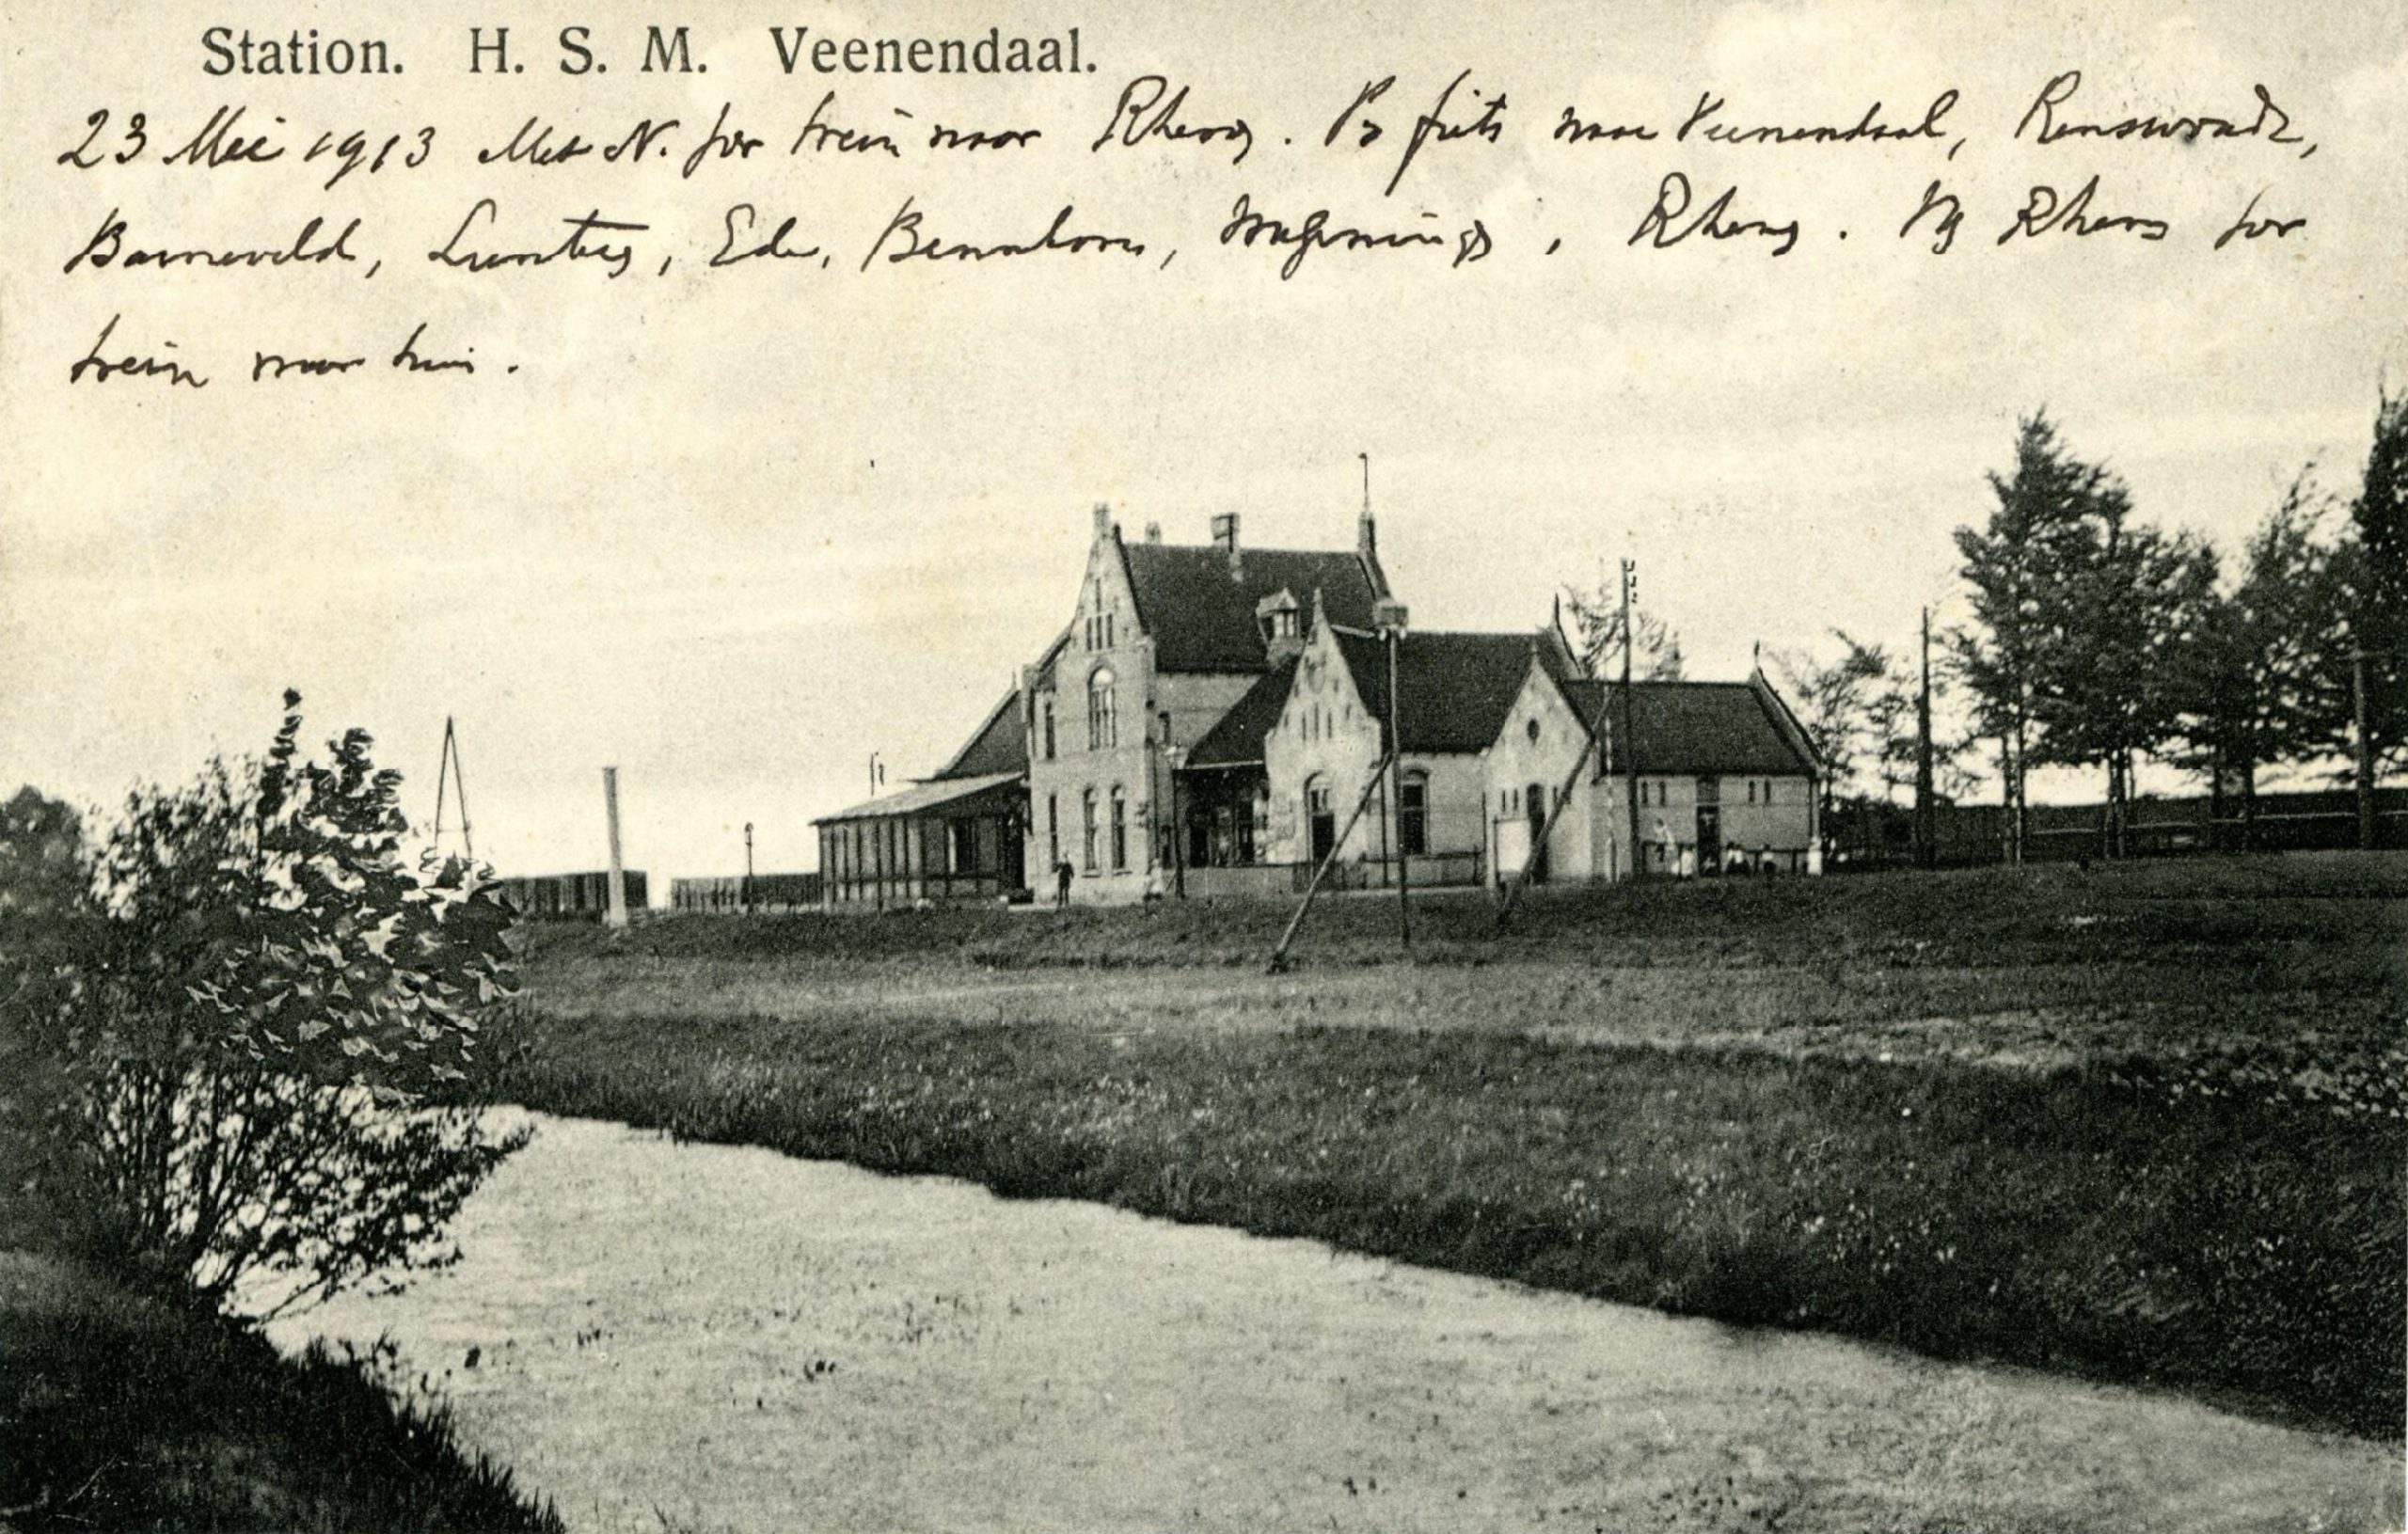 Station. H. S. M. Veenendaal.
23 Mei 1913 Met N. per trein naar Rhenen. Per fiets naar Veenendaal, Renswoude,
Barneveld, Lunteren, Ede, Bennekom, Wageningen, Rhenen. Rhenen per
trein naar huis.